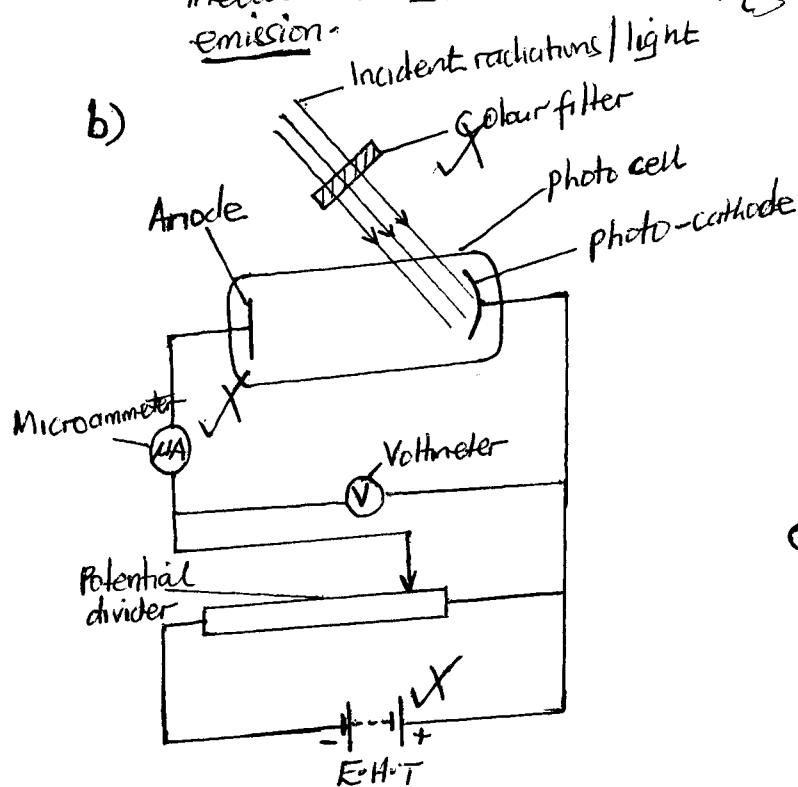 emission.
Incident radiations / light
b)
Colour filter
photo cell
Anode
photo-cathode
Microammeter
μA
Voltmeter
V
Potential
divider
- +
E.H.T